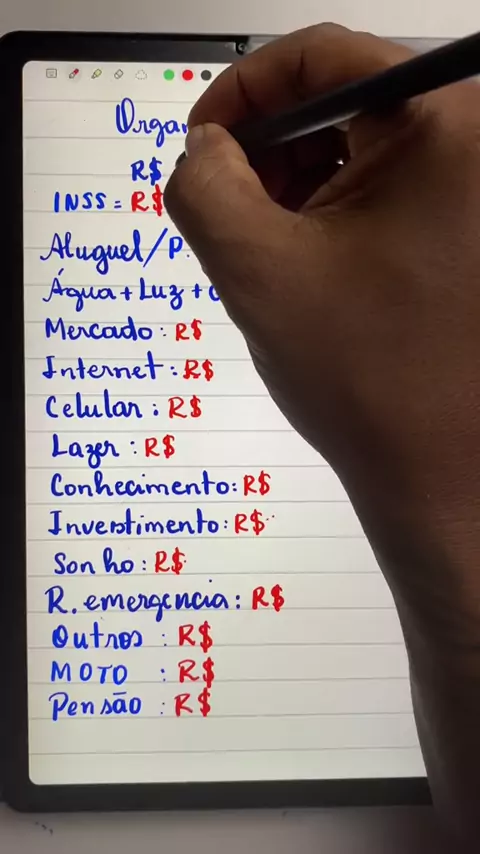 R$
INSS = R$
Aluguel/P.
Água + Luz +
Mercado: R$
Internet: R$
Celular: R$
Lazer: R$
Conhecimento: R$
Investimento: R$
Sonho: R$
R. emergencia: R$
Outros : R$
MOTO : R$
Pensão : R$